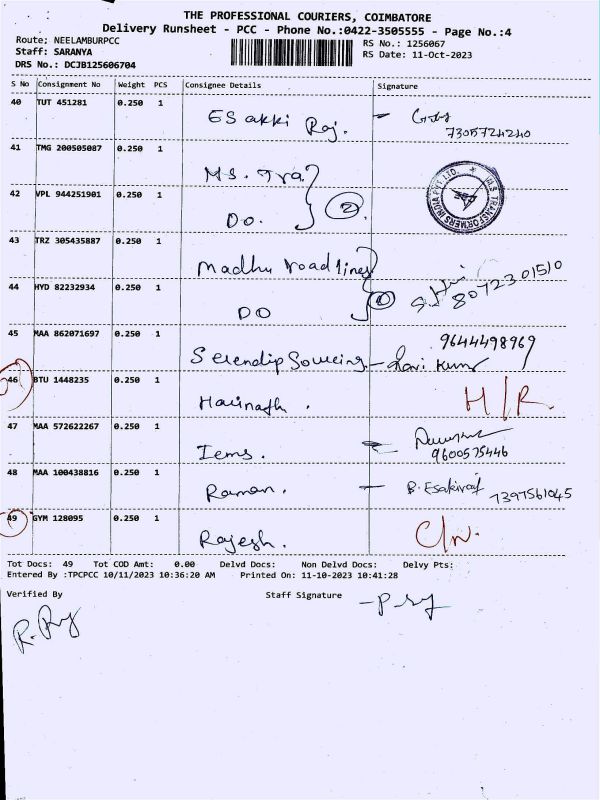 THE PROFESSIONAL COURIERS, COIMBATORE
Delivery Runsheet - PCC - Phone No.:0422-3505555 - Page No.:4
Route; NEELAMBURPCC
RS No.: 1256067
Staff: SARANYA
RS Date: 11-Oct-2023
DRS No.: DCJB125606704
S No Consignment No Weight PCS Consignee Details Signature
40 TUT 451281 0.250 1 Esakki Raj. -
7305724240
41 TMG 200505087 0.250 1 Ms. Tra
42 VPL 944251901 0.250 1 Do. 2 HLS TRANSFORMERS INDIA PVT LTD.
43 TRZ 305435887 0.250 1 Madhu road lines
44 HYD 82232934 0.250 1 DO 8072301510
45 MAA 862071697 0.250 1 Serendip Sourcing - Ravi Kumar
9644498969
46 BTU 1448235 0.250 1 Harinath. H/R.
47 MAA 572622267 0.250 1 Iems.
9600575446
48 MAA 100438816 0.250 1 Raman. - B. Esakiraj 7397561045
49 GYM 128095 0.250 1 Rajesh. C/N.
Tot Docs: 49 Tot COD Amt: 0.00 Delvd Docs: Non Delvd Docs: Delvy Pts:
Entered By :TPCPCC 10/11/2023 10:36:20 AM Printed On: 11-10-2023 10:41:28
Verified By Staff Signature